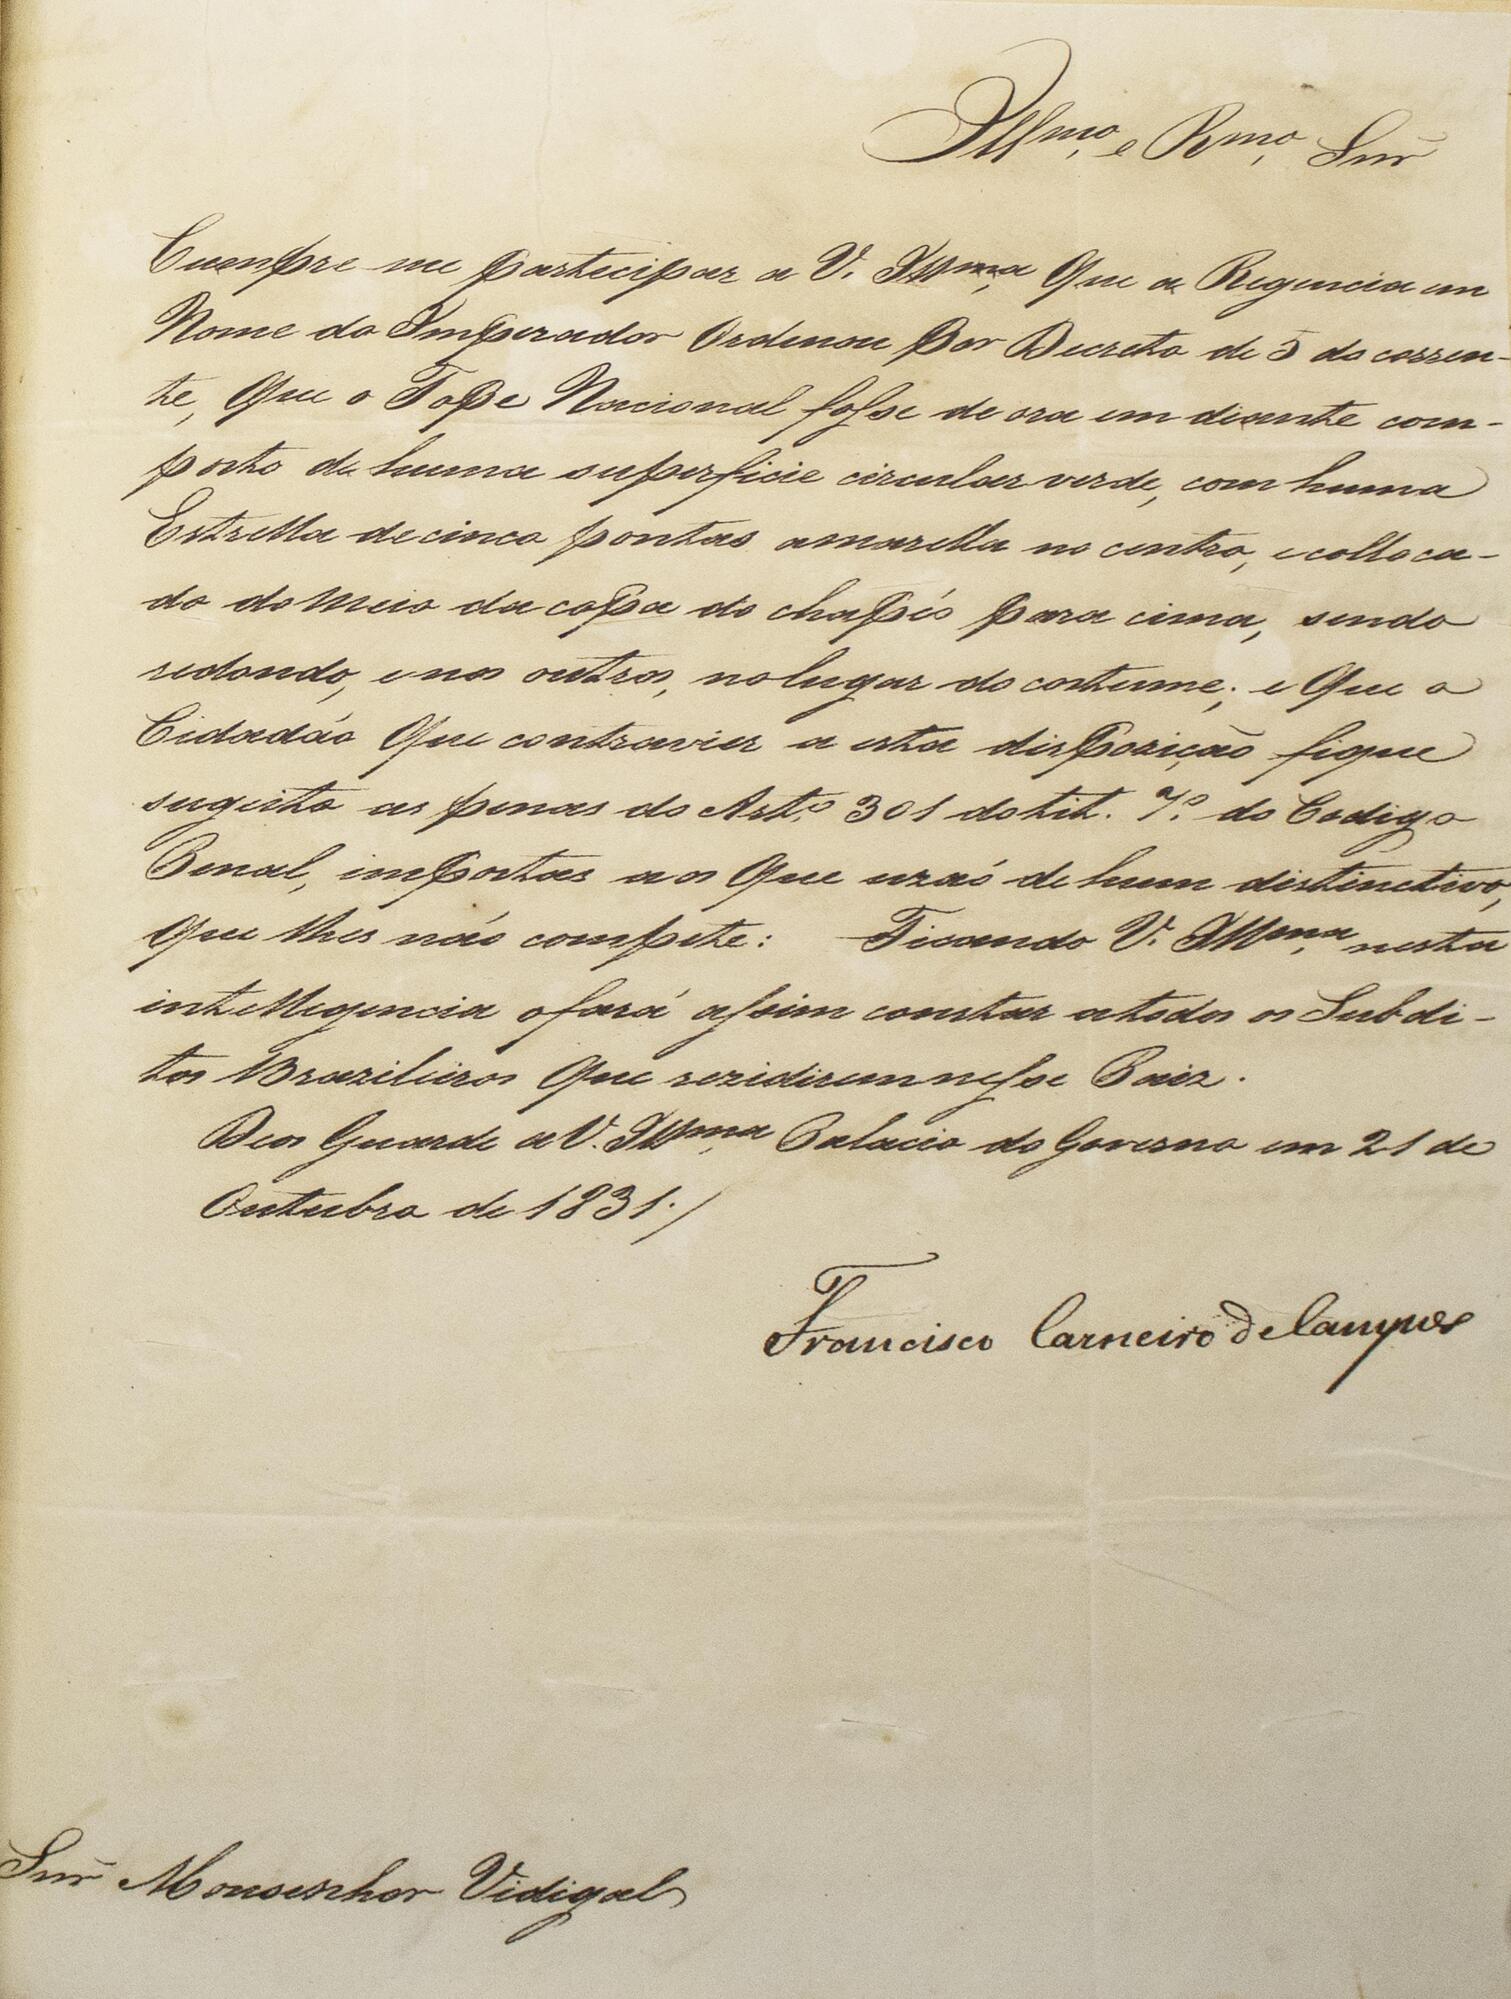 Illmo, e Rmo, Snr̃
Cumpre me partecipar a V. Illma, Que a Regencia em
Nome do Imperador Ordenou Por Decreto de 5 do corren-
te, Que o Tope Nacional fosse de ora em diante com-
posto de huma superficie circular verde, com huma
Estrella de cinco pontas amarella no centro, e colloca-
do do Meio da copa do chapéo para cima, sendo
redondo, e nos outros, no lugar do costume; e Que o
Cidadão Que contravier a esta disposição fique
sugeito as penas do Arto 301 do tit. 7o do Codigo
Penal, impostas aos Que uzaó de hum distinctivo,
Que lhes náo compete: Ficando V. Illma, nesta
intelligencia o fará assim constar a todos os Subdi-
tos Brazileiros Que rezidirem nesse Paiz.
Deos Guarde a V. Illma, Palacio do Governo em 21 de
Outubro de 1831./
Francisco Carneiro de Campos
Snr̃ Monsenhor Vidigal